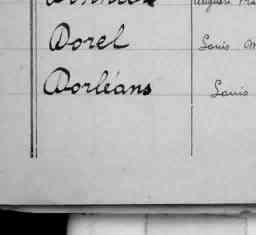 Dorel Louis
Dorléans Louis